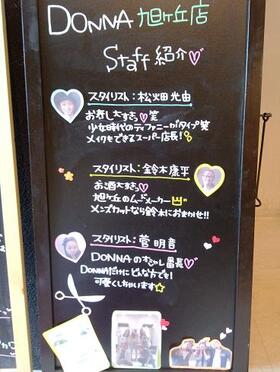 DONNA 旭ヶ丘店
Staff 紹介♡
スタイリスト:松畑光由
お寿し大すき♡笑
少女時代のティファニーがタイプ笑
メイクもできるスーパー店長!
スタイリスト:鈴木康平
お酒大すき♡
旭ヶ丘のムードメーカー
メンズカットなら鈴木におまかせ!!
スタイリスト:菅 明音
DONNAのオシャレ番長♡
DONNAだけにどんな方でも!
可愛くしちゃいます☆